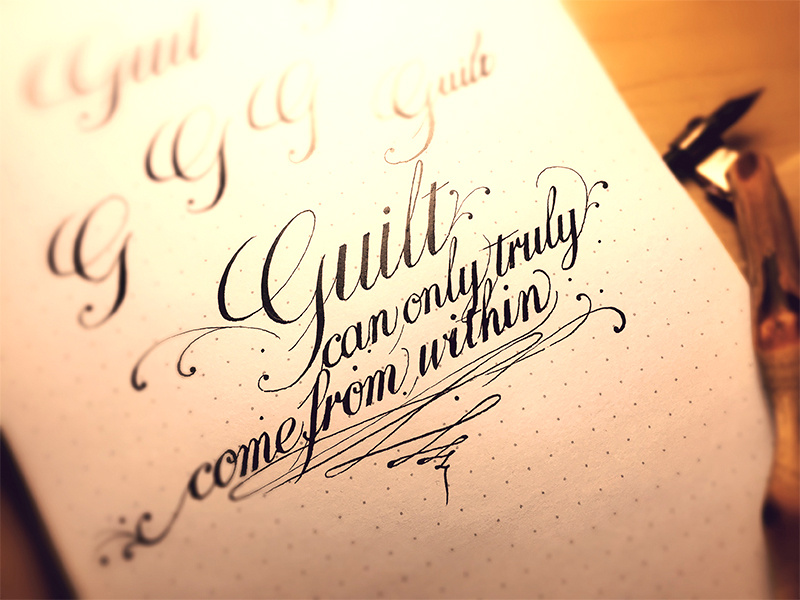 Guilt
G G Guilt
G
Guilt
can only truly
come from within